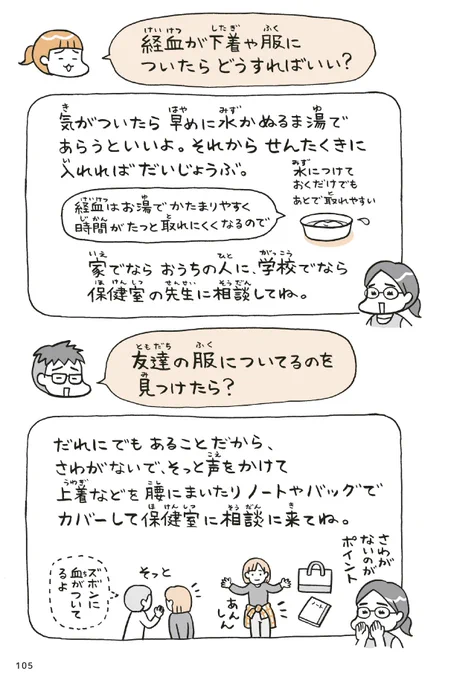 経血が下着や服に
ついたら どうすればいい?
気がついたら 早めに水かぬるま湯で
あらうといいよ。それから せんたくきに
入れれば だいじょうぶ。
水につけて
おくだけでも
あとで取れやすい
経血はお湯でかたまりやすく
時間がたつと取れにくくなるので
家でなら おうちの人に、学校でなら
保健室の先生に相談してね。
友達の服についてるのを
見つけたら?
だれにでも あることだから、
さわがないで、そっと声をかけて
上着などを腰にまいたり ノートやバッグで
カバーして保健室に相談に来てね。
さわが
ないのが
ポイント
ズボンに
血がついて
るよ
そっと
あんしん
ノート
105